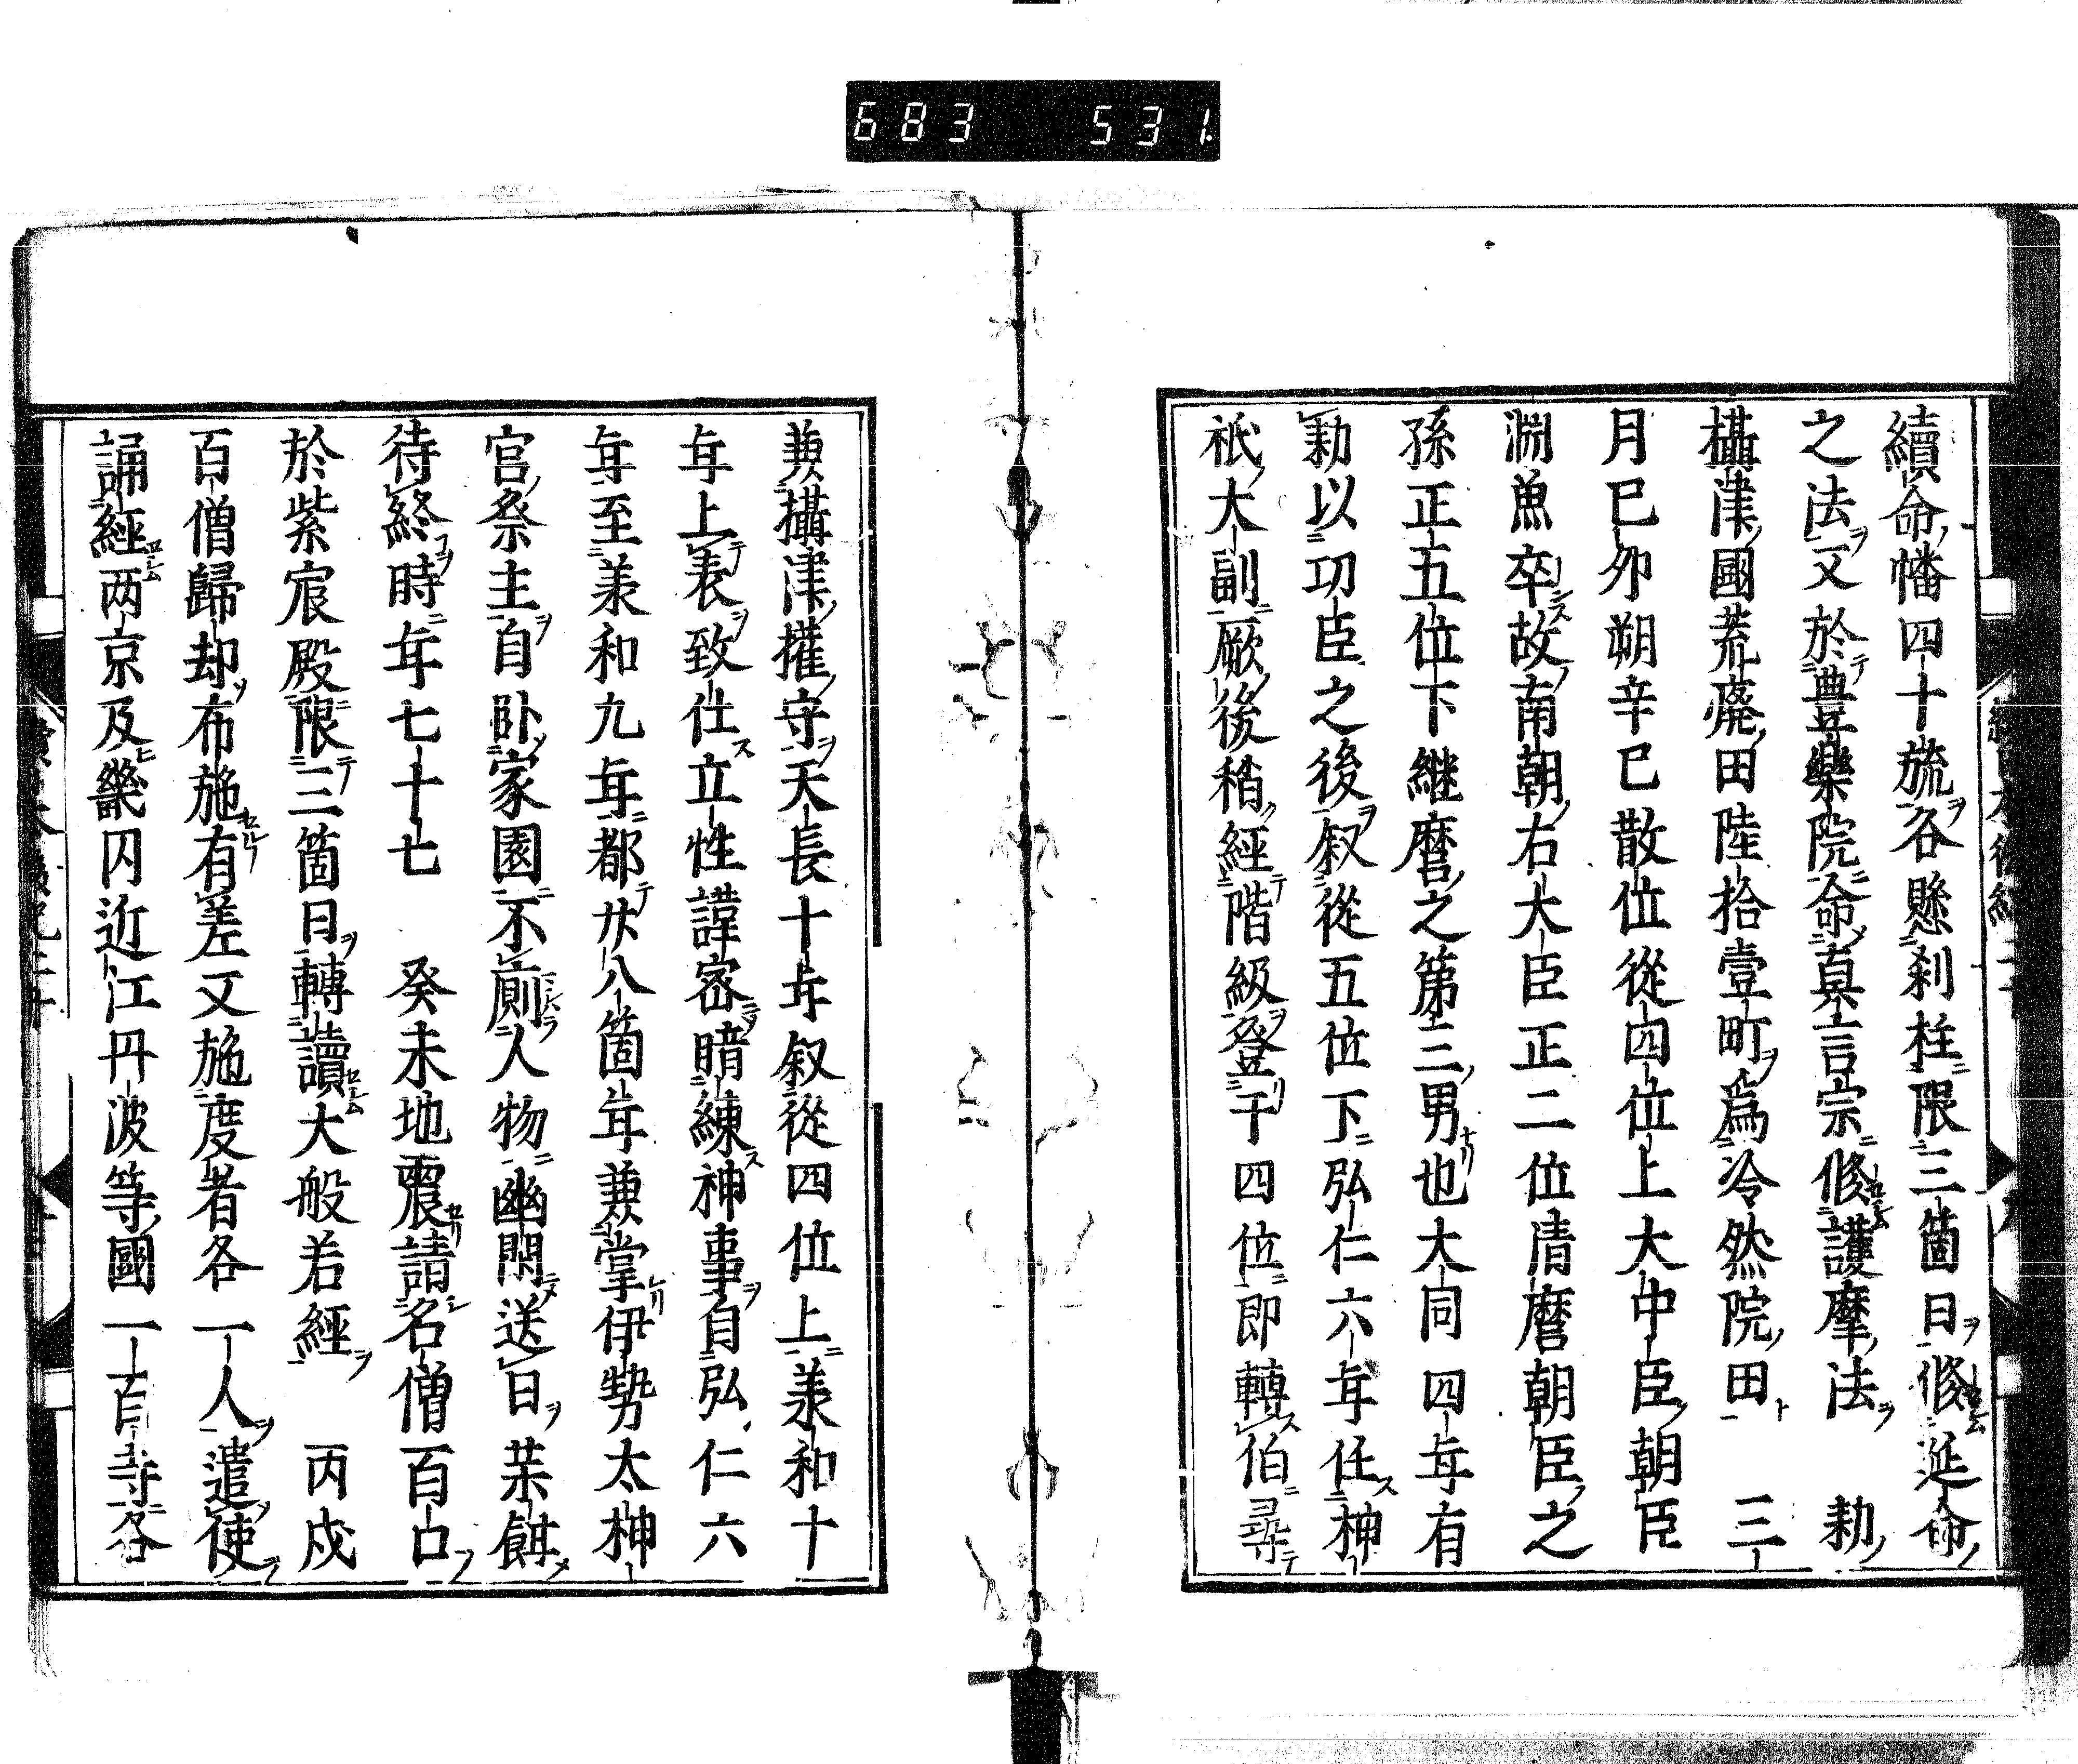 683 531
續命幡四十旒各懸刹柱限三箇日修延命
之法又於豊樂院命真言宗修護摩法 勅
攝津國荒廢田陸拾壹町爲冷然院田 三
月己卯朔辛巳散位從四位上大中臣朝臣
淵魚卒故南朝右大臣正二位清麿朝臣之
孫正五位下継麿之第三男也大同四年有
勅以功臣之後叙從五位下弘仁六年任神
祇大副厥後稍經階級登于四位即轉伯尋
兼攝津權守天長十年叙從四位上羕和十
年上表致仕立性謹密暗練神事自弘仁六
年至羕和九年都廿八箇年兼掌伊勢太神
宮祭主自卧家園不廁人物幽閑送日茱餌
待終時年七十七 癸未地震請名僧百口
於紫宸殿限三箇日轉讀大般若經 丙戌
百僧歸却布施有差又施度者各一人遣使
誦經两京及畿内近江丹波等國一百寺各